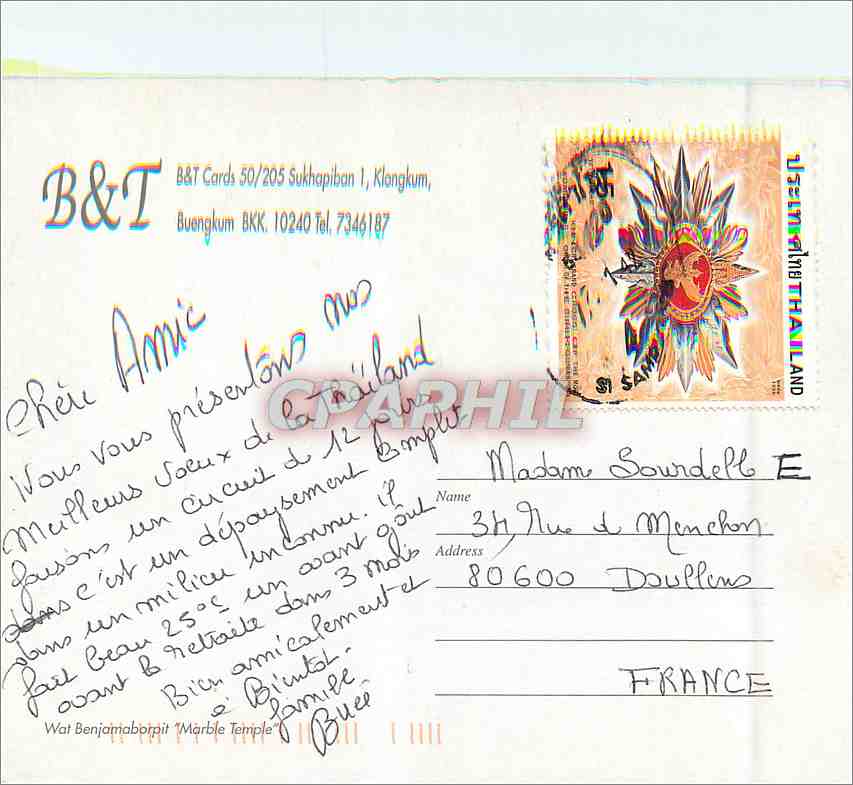 B&T
B&T Cards 50/205 Sukhapiban 1, Klongkum,
Buengkum BKK. 10240 Tel. 7346187
ประเทศไทย THAILAND
Chère Amie
Nous Vous présentons nos
Meilleurs Voeux de la Thaïland
faisons un circuit de 12 jours
c'est un dépaysement Complet
dans un milieu inconnu. il
fait beau 25°c un avant goût
avant la retraite dans 3 mois
Bien amicalement et
à Bientôt.
famille
CPAPHIL
Madame Sourdelle E
Name
34, Rue de Menchon
Address
80600 Doullens
FRANCE
Wat Benjamaborpit "Marble Temple"